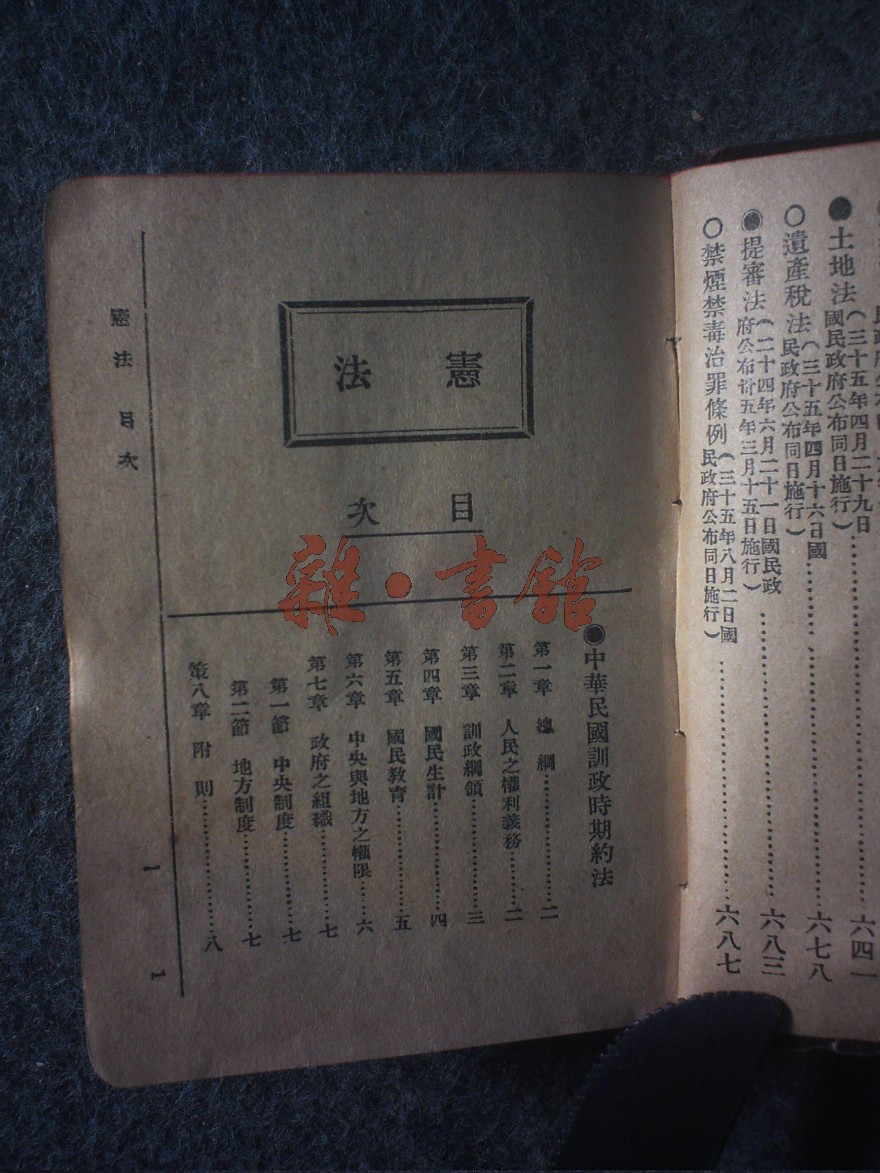 土地法（三十五年四月二十九日國民政府公布同日施行）……六四一
遺產稅法（三十五年四月十六日國民政府公布同日施行）……六七八
提審法（二十四年六月二十一日國民政府公布卅五年三月十五日施行）……六八三
禁煙禁毒治罪條例（三十五年八月二日國民政府公布同日施行）……六八七
憲法
目次
中華民國訓政時期約法
第一章 總綱……二
第二章 人民之權利義務……二
第三章 訓政綱領……三
第四章 國民生計……四
第五章 國民教育……五
第六章 中央與地方之權限……六
第七章 政府之組織……七
第一節 中央制度……七
第二節 地方制度……七
第八章 附則……八
憲法 目次
1
1
雜·書館